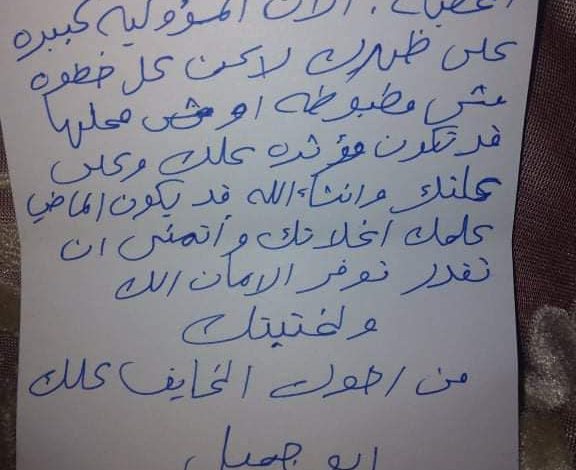 الآن المسؤولية كبيره
على ظهرك لاكن كل خطوه
مش مظبوطه او مش محلها
قد تكون مؤثره علك وعلى
علتك وانشاءالله قد يكون الماضي
علمك اخلاتك واتمنى ان
تقدر توفر الامان الك
ولختيتك
من اخوك الخايف علك
ابو جميل